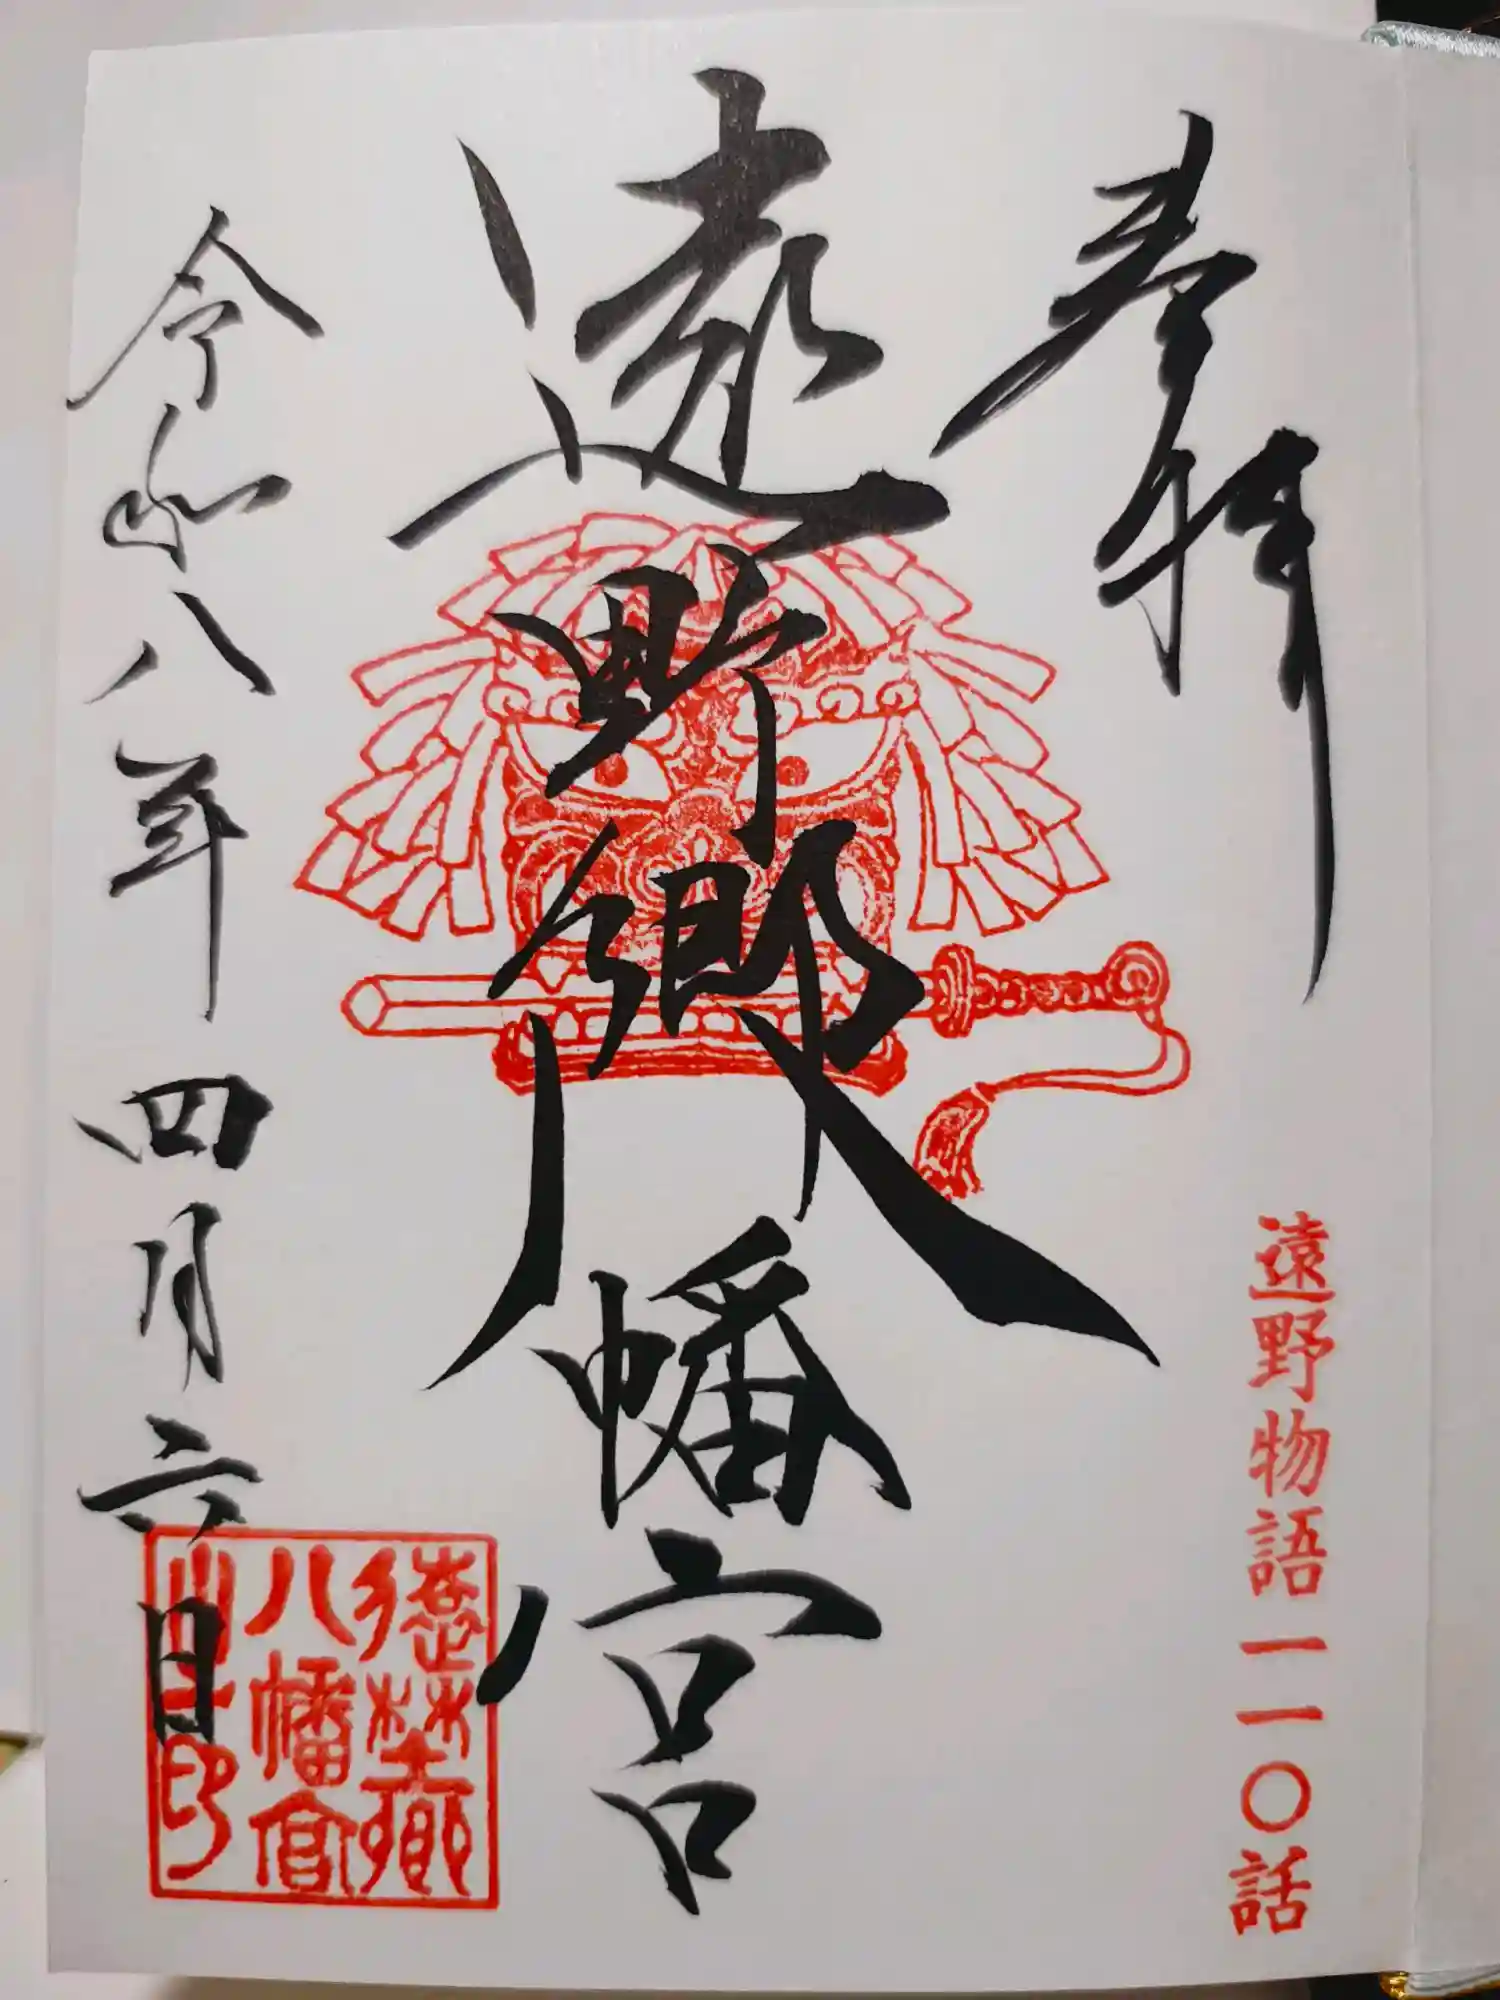 奉拝
遠野物語一一〇話
遠野郷八幡宮
遠野郷
八幡宮
之印
令和八年四月六日